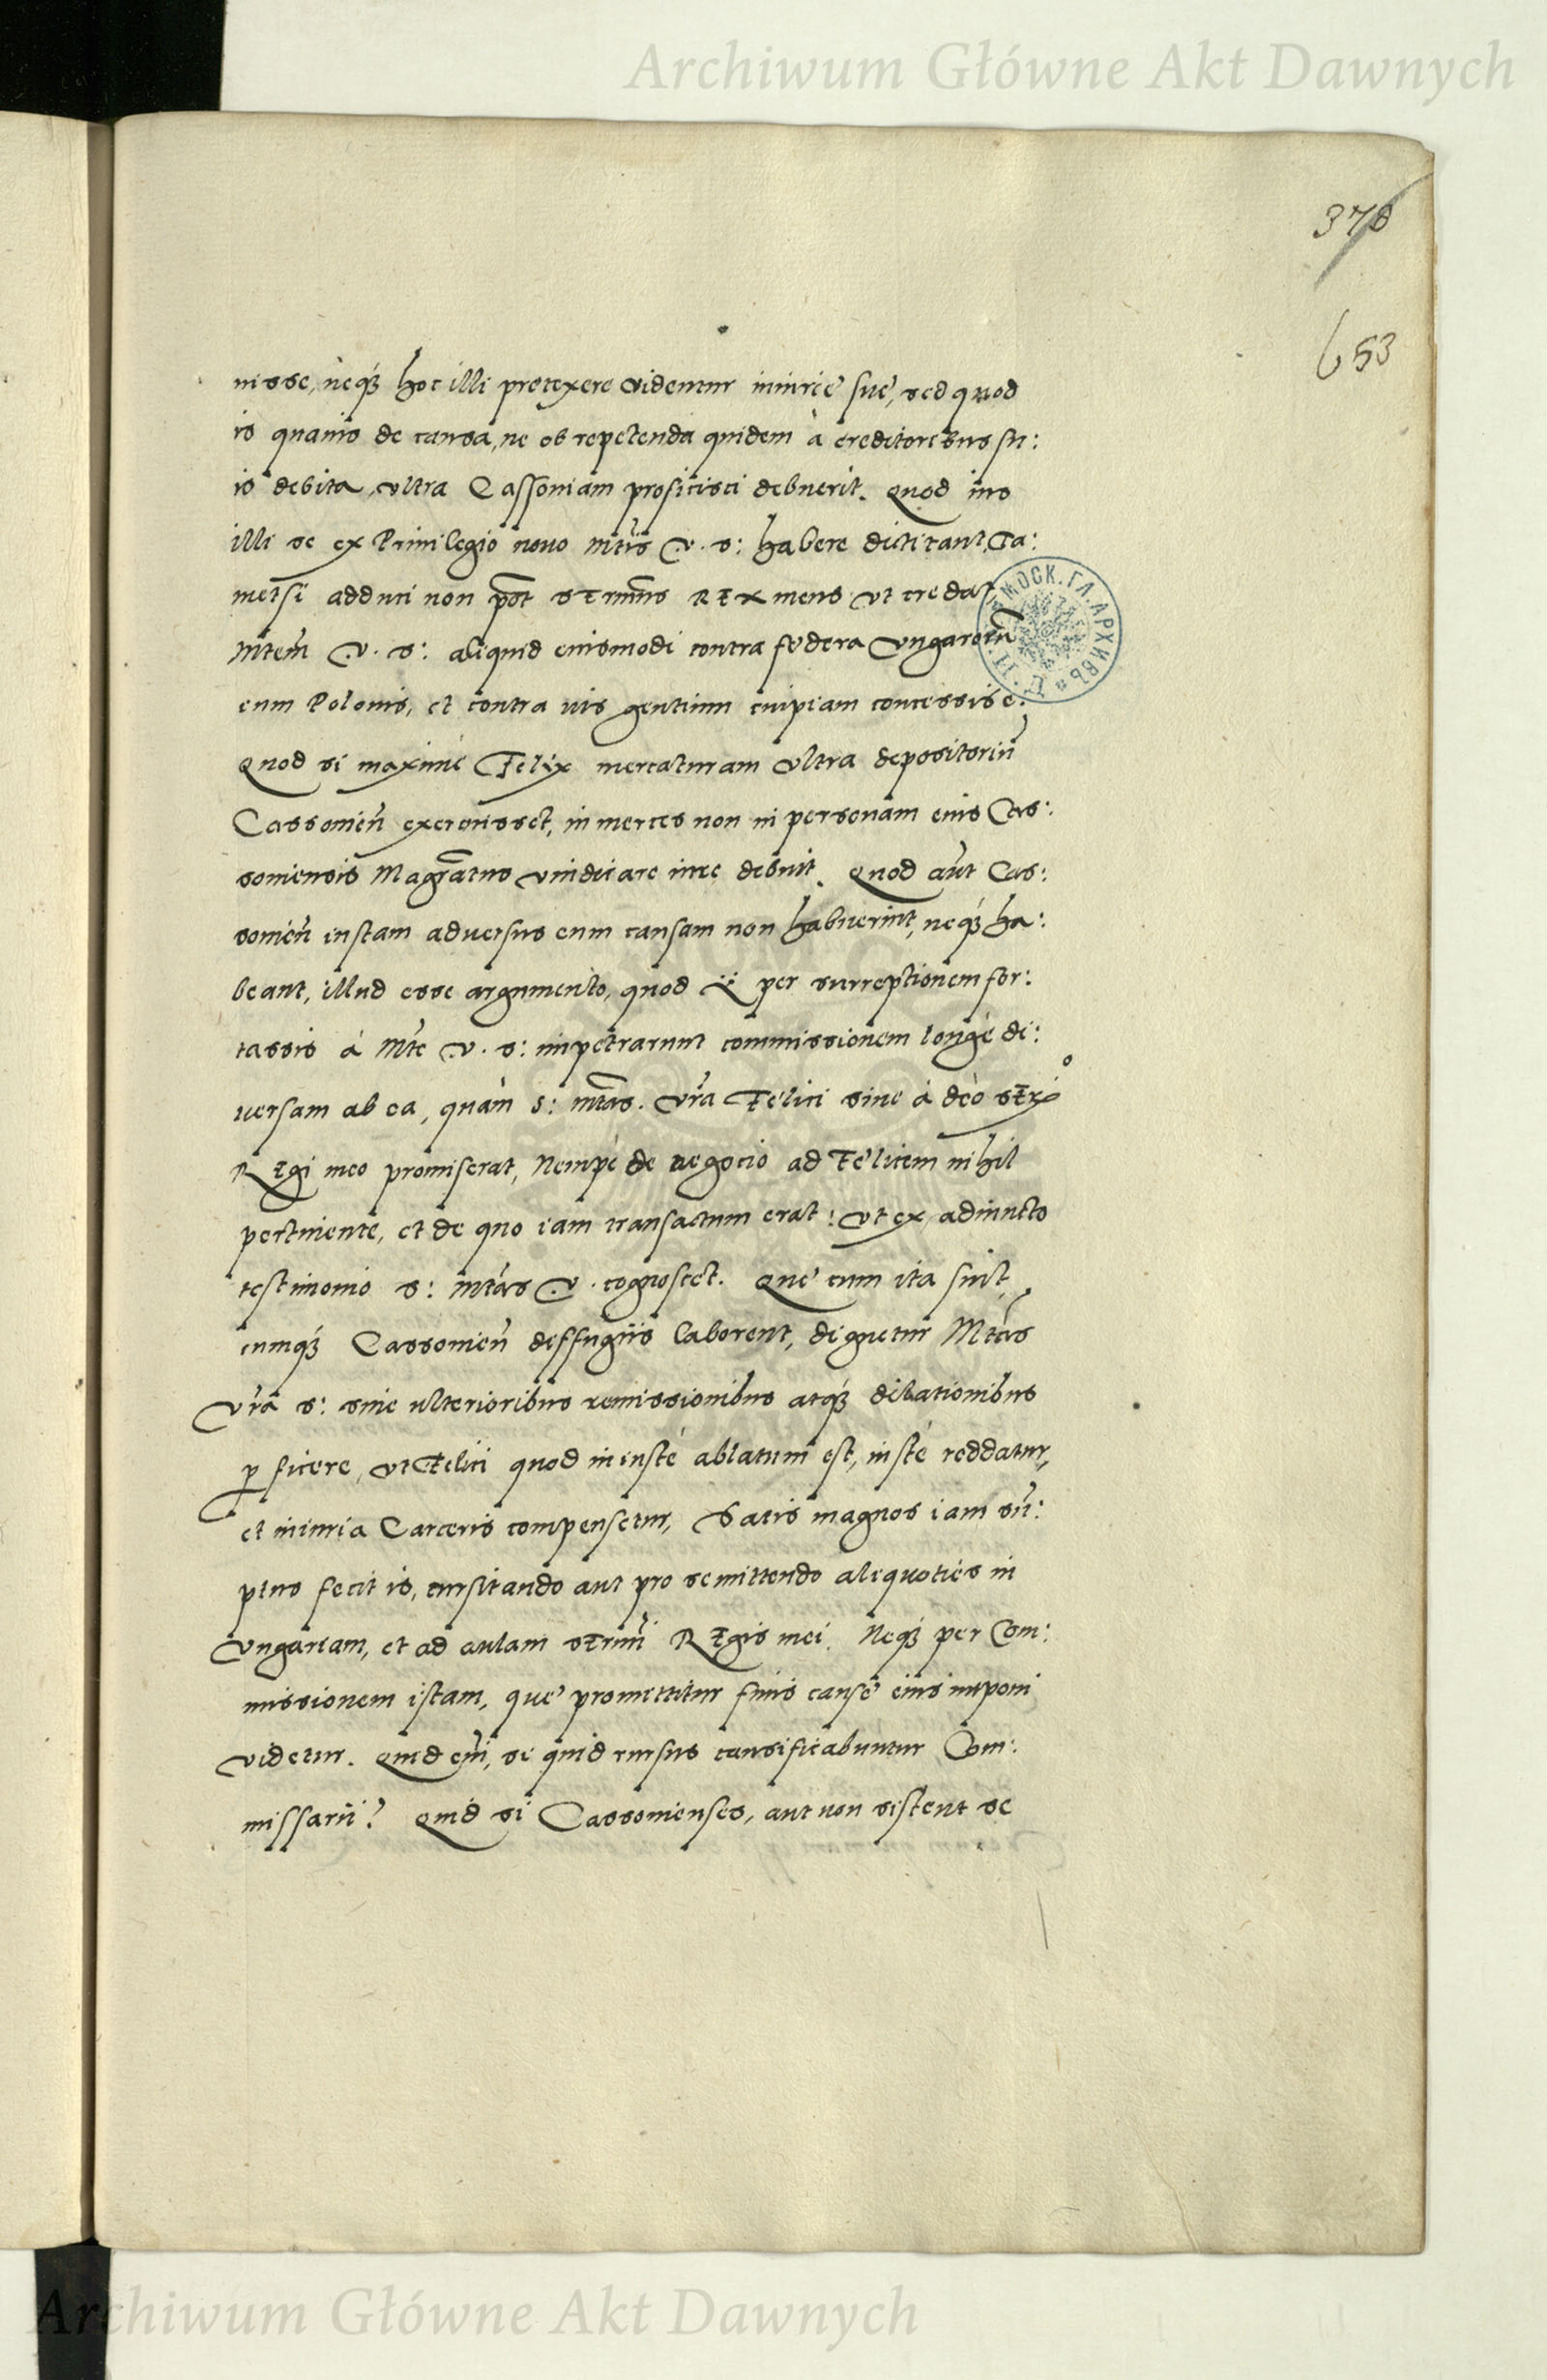 Archiwum Główne Akt Dawnych
370
653
nisse, neq3 hoc illi pretexere videntur iniurię suę, sed quod
is quauis de causa, ne ob repetenda quidem à creditoribus su:
is debita, vltra Cassouiam proficisci debuerit. Quod ius
illi se ex Priuilegio nouo Mtis V. S: habere dictitant, Ta:
metsi adduci non pōt Sermus REx meus vt credat
Mtem V. S: aliquid eiusmodi contra fędera Vngarorū
cum Polonis, et contra ius gentium cuipiam concessisse.
Quod si maximè Felix mercaturam vltra depositoriū
Cassouieñ exercuisset, in merces non in personam eius Cas:
souiensis Magratus vindicare iure debuit. Quod aut Cas:
souieñ iustam aduersus eum causam non habuerint, neq3 ha:
beant, illud esse argumento, quod per surreptionem for:
tassis à Mte V. S: impetrarunt commissionem longè di:
uersam ab ea, quam S: Mtas. Vra Felici siue à deò Sermo
REgi meo promiserat, Nempè de negocio ad Felicem nihil
pertinente, et de quo iam transactum erat: vt ex adiuncto
testimonio S: Mtas V. cognoscet. Quę cum ita sint,
cumq3 Cassouieñ deffugiis laborent, dignetur Mtas
Vra S: sine vlterioribus remissionibus atq3 dilationibus
pficere, vt Felici quod iniustè ablatum est, iustè reddatur,
et iniuria Carceris compensetur, Satis magnos iam sū:
ptus fecit is, cursitando aut pro se mittendo aliquoties in
Vngariam, et ad aulam Sermi REgis mei. Neq3 per Com:
missionem istam, quę promittitur finis causę eius imponi
videtur. Quid em, si quid rursus causificabuntur Com:
missarii? Quid si Cassouienses, aut non sistent se
МОСК. ГЛ. АРХИВЪ
Archiwum Główne Akt Dawnych